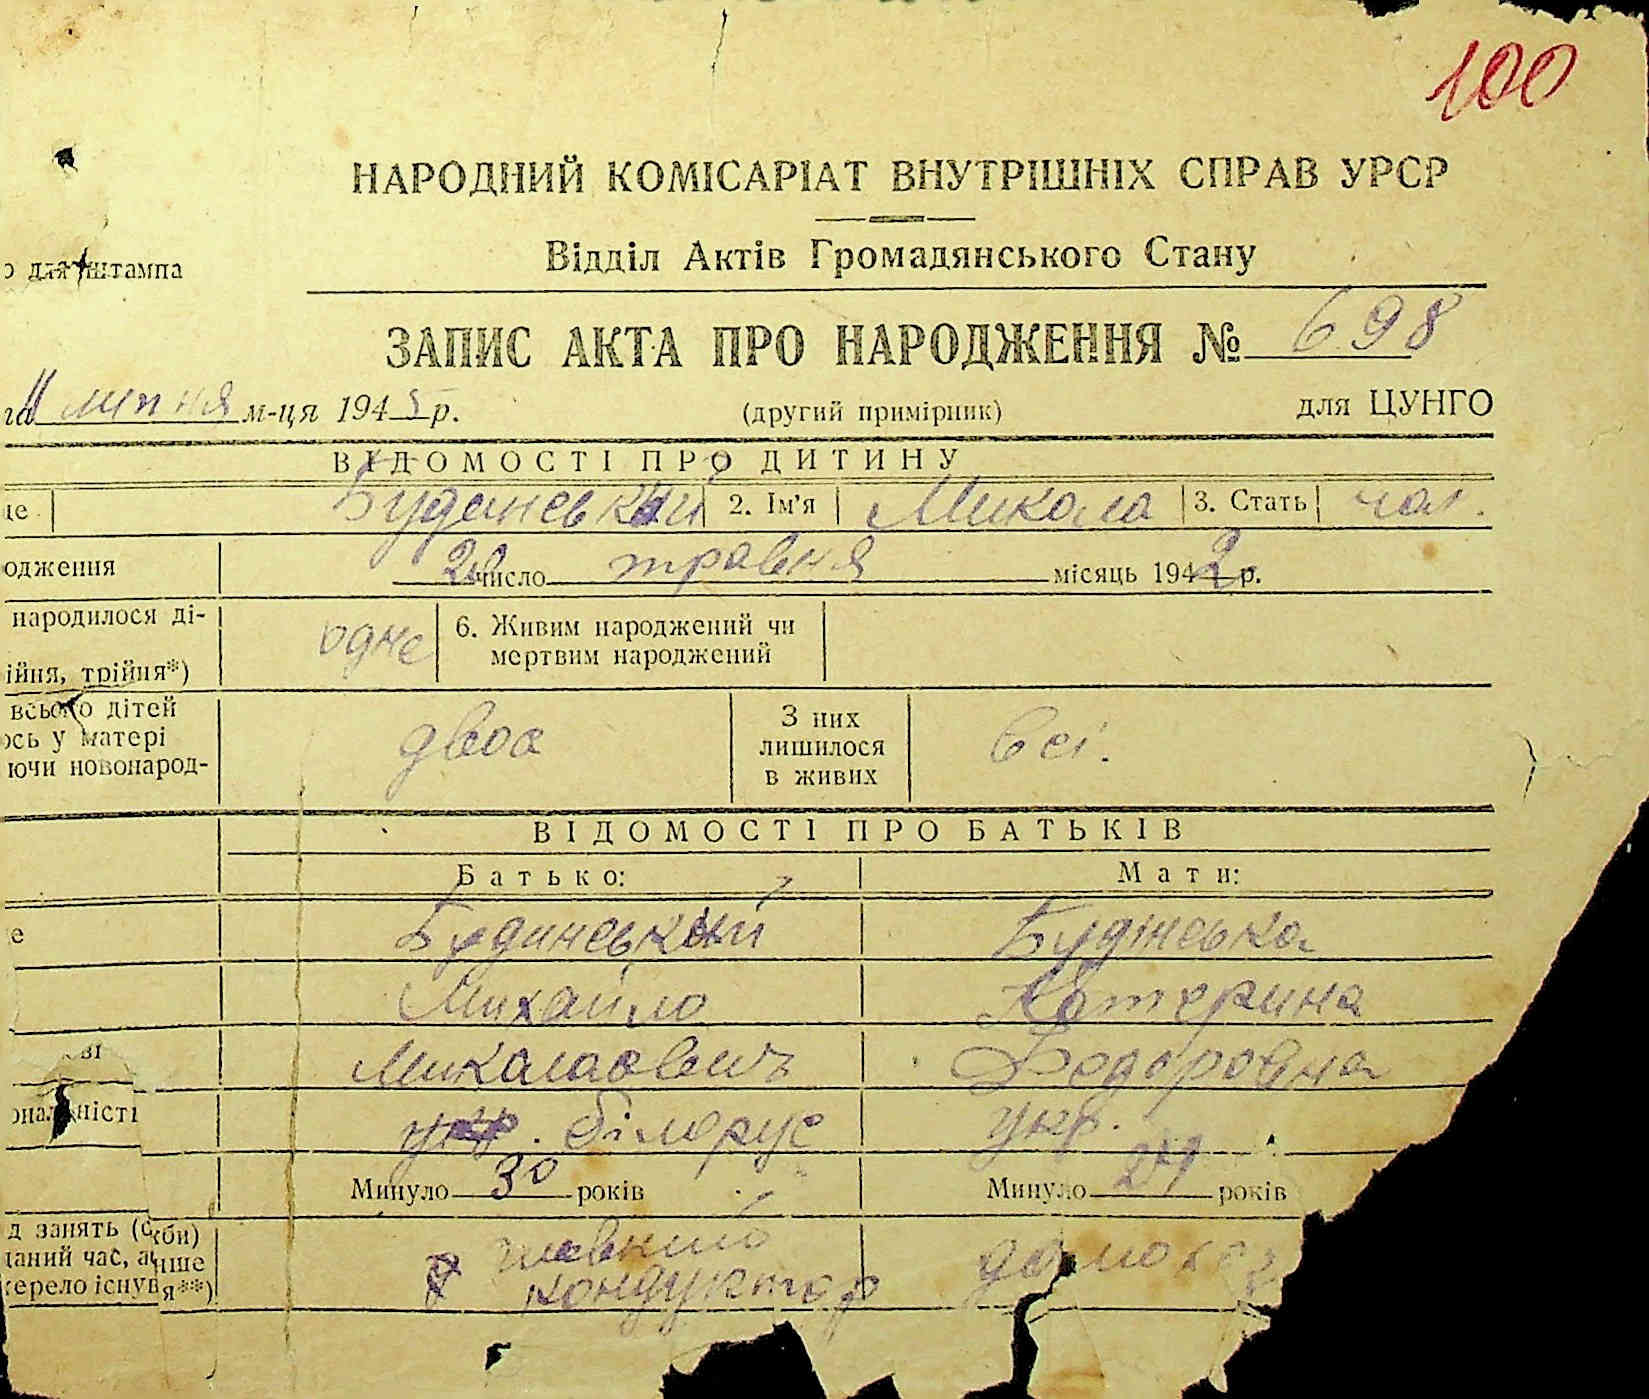 100
НАРОДНИЙ КОМІСАРІАТ ВНУТРІШНІХ СПРАВ УРСР
Відділ Актів Громадянського Стану
для штампа
ЗАПИС АКТА ПРО НАРОДЖЕННЯ № 698
11 липня м-ця 1945 р. (другий примірник) для ЦУНГО
ВІДОМОСТІ ПРО ДИТИНУ
Будинський 2. Ім'я Микола 3. Стать чол.
одження 20 число травня місяць 1942 р.
народилося ді-
ійня, трійня*) одне 6. Живим народжений чи
мертвим народжений
всього дітей
ось у матері
ючи новонарод- двоє З них
лишилося
в живих всі.
ВІДОМОСТІ ПРО БАТЬКІВ
Батько: Мати:
е Будинський Будінська
Михайло Катерина
ві Миколаєвич Федоровна
ональності укр. білорус укр.
Минуло 30 років Минуло років
д занять (служби)
даний час, а
жерело існув я**) кондуктор